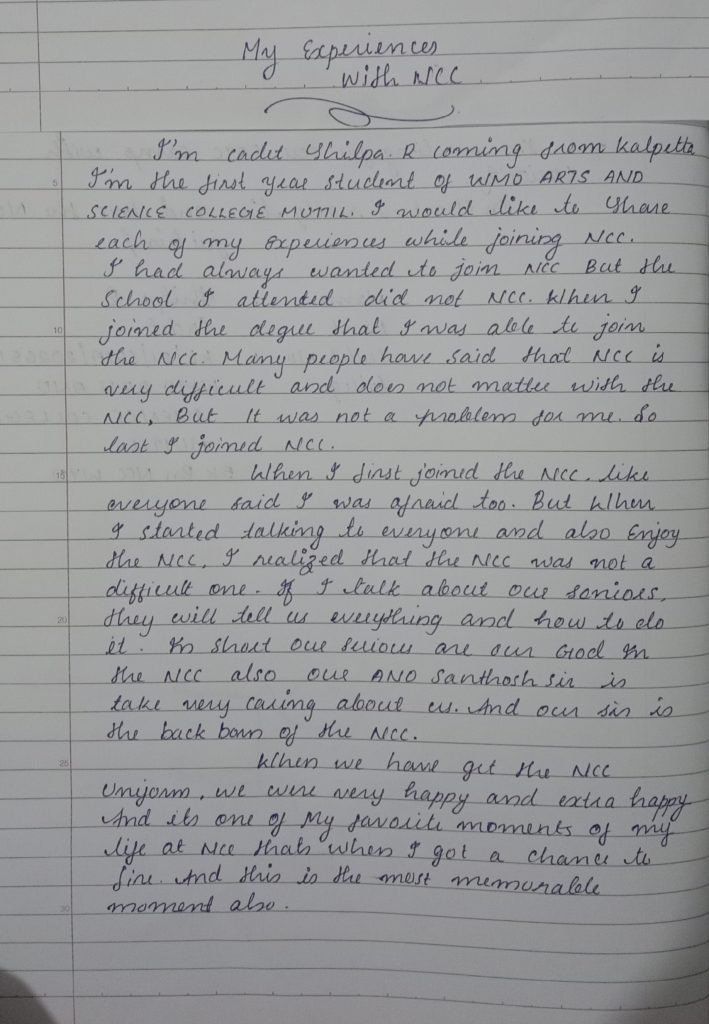 My Experiences
with NCC
I'm cadet Shilpa. R coming from Kalpetta
I'm the first year student of WMO ARTS AND
SCIENCE COLLEGE MUTTIL. I would like to Share
each of my experiences while joining NCC.
I had always wanted to join NCC But the
School I attented did not NCC. When I
joined the degree that I was able to join
the NCC. Many people have said that NCC is
very difficult and does not matter with the
NCC, But It was not a problem for me. So
last I joined NCC.
When I first joined the NCC. like
everyone said I was afraid too. But When
I started talking to everyone and also Enjoy
the NCC, I realized that the NCC was not a
difficult one. If I talk about our soniors,
they will tell us everything and how to do
it. In short our seriors are our God In
the NCC also our ANO Santhosh sir is
take very caring about us. And our sir is
the back born of the NCC.
When we have get the NCC
Uniform, we were very happy and extra happy
And its one of My favorite moments of my
life at NCC thats when I got a chance to
fire. And this is the most memorable
moment also.
5
10
15
20
25
30